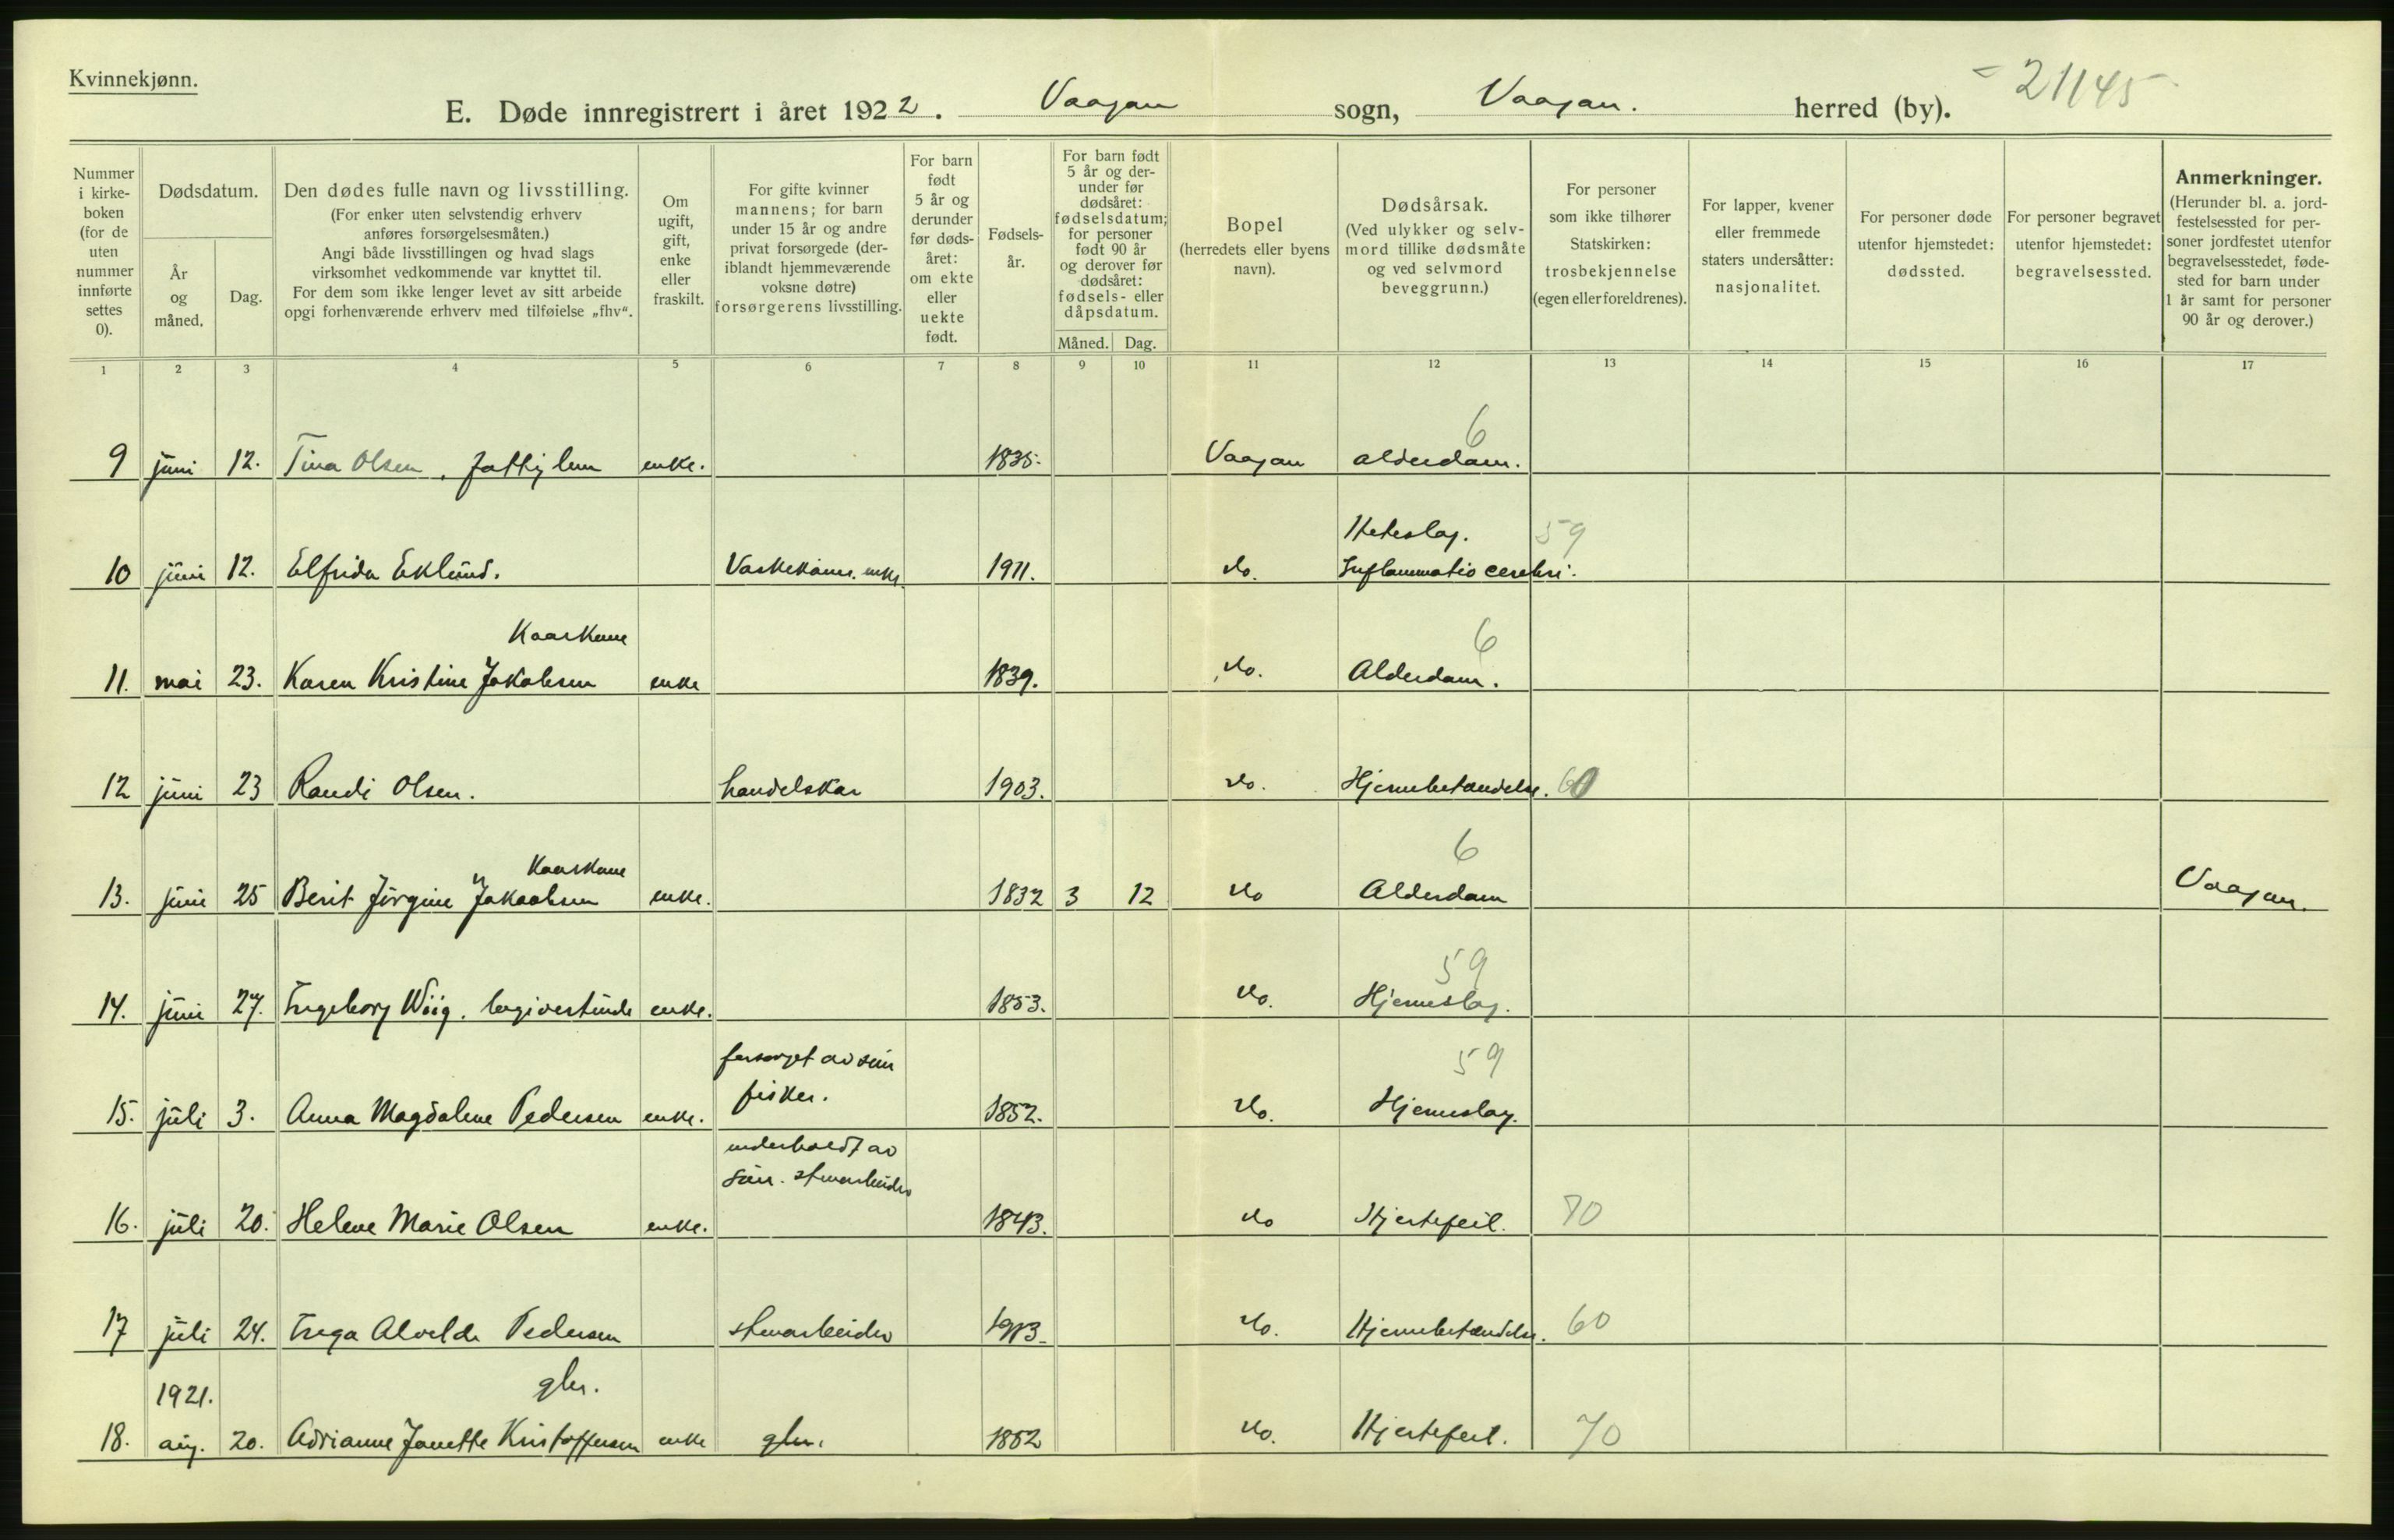 Kvinnekjønn.
E. Døde innregistrert i året 1922. Vaagan sogn, Vaagan. herred (by).
21145
Nummer i kirke-boken (for de uten nummer innførte settes 0).
Dødsdatum.
År og måned.
Dag.
Den dødes fulle navn og livsstilling.
(For enker uten selvstendig erhverv anføres forsørgelsesmåten.)
Angi både livsstillingen og hvad slags virksomhet vedkommende var knyttet til.
For dem som ikke lenger levet av sitt arbeide opgi forhenværende erhverv med tilføielse „fhv“.
Om ugift, gift, enke eller fraskilt.
For gifte kvinner mannens; for barn under 15 år og andre privat forsørgede (deriblandt hjemmeværende voksne døtre) forsørgerens livsstilling.
For barn født 5 år og derunder før dødsåret: om ekte eller uekte født.
Fødsels-år.
For barn født 5 år og der-under før dødsåret: fødselsdatum; for personer født 90 år og derover før dødsåret: fødsels- eller dåpsdatum.
Måned. Dag.
Bopel
(herredets eller byens navn).
Dødsårsak.
(Ved ulykker og selv-mord tillike dødsmåte og ved selvmord beveggrunn.)
For personer som ikke tilhører Statskirken: trosbekjennelse (egen eller foreldrenes).
For lapper, kvener eller fremmede staters undersåtter: nasjonalitet.
For personer døde utenfor hjemstedet: dødssted.
For personer begravet utenfor hjemstedet: begravelsessted.
Anmerkninger.
(Herunder bl. a. jord-festelsessted for per-soner jordfestet utenfor begravelsesstedet, føde-sted for barn under 1 år samt for personer 90 år og derover.)
1 2 3 4 5 6 7 8 9 10 11 12 13 14 15 16 17
6
9 juni 12. Tina Olsen, fattiglem enke. 1835. Vaagan alderdom.
Heteslag. 59
10 juni 12. Elfrida Eklund. Vaskekone. enke. 1911. do. Inflammatio cerebri.
Kaarkone 6
11. mai 23. Karen Kristine Jakobsen enke 1839. do. Alderdom.
12 juni 23 Randi Olsen. handelskar 1903. do. Hjernebetændelse. 60
Kaarkone 6
13. juni 25 Berit Jörgine Jakobsen enke. 1832 3 12 do Alderdom Vaagan.
59
14. juni 27. Ingeborg Wiig. enke. 1853. do. Hjerneslag.
forsörget av sön 59
fisker.
15. juli 3. Anna Magdalene Pedersen enke. 1852. do. Hjerneslag.
underholdt av
sön. stenarbeider
16. juli 20. Helene Marie Olsen enke. 1843. do Hjertefeil. 70
17 juli 24. Inga Alvilde Pedersen stenarbeider 1913. do. Hjernebetændelse. 60
1921. gbr.
18. aug. 20. Adrianne Janette Kristoffersen enke gbr. 1852 do. Hjertefeil. 70